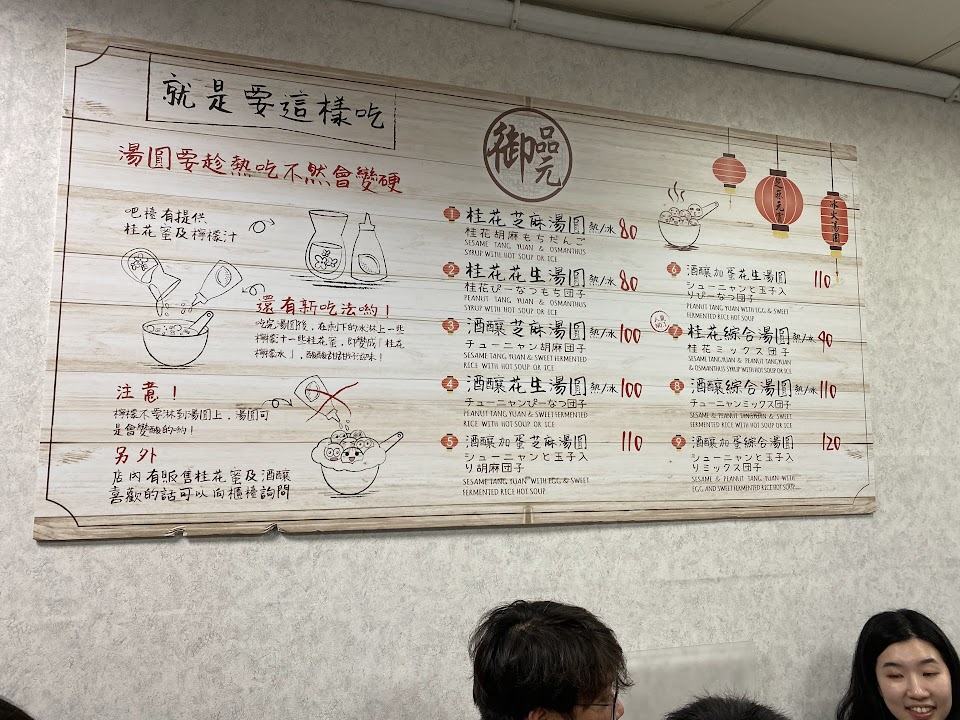 就是要這樣吃
湯圓要趁熱吃不然會變硬
吧檯有提供
桂花蜜及檸檬汁
還有新吃法喲！
吃完湯圓後，在剩下的冰淋上一些
檸檬汁一些桂花蜜，即變成「桂花
檸檬冰」，酸酸甜甜好滋味！
注意！
檸檬不要淋到湯圓上，湯圓可
是會變酸的喲！
另外
店內有販售桂花蜜及酒釀
喜歡的話可以向櫃檯詢問
御品元
1 桂花芝麻湯圓 熱/冰 80
桂花胡麻もちだんご
SESAME TANG YUAN & OSMANTHUS
SYRUP WITH HOT SOUP OR ICE
2 桂花花生湯圓 熱/冰 80
桂花ぴーなつもち団子
PEANUT TANG YUAN & OSMANTHUS
SYRUP WITH HOT SOUP OR ICE
3 酒釀芝麻湯圓 熱/冰 100
チューニャン胡麻団子
SESAME TANG YUAN & SWEET FERMENTED
RICE WITH HOT SOUP OR ICE
4 酒釀花生湯圓 熱/冰 100
チューニャンぴーなつ団子
PEANUT TANG YUAN & SWEET FERMENTED
RICE WITH HOT SOUP OR ICE
5 酒釀加蛋芝麻湯圓 110
シューニャンと玉子入
り胡麻団子
SESAME TANG YUAN WITH EGG & SWEET
FERMENTED RICE HOT SOUP
元宵
冰火湯圓
6 酒釀加蛋花生湯圓 110
シューニャンと玉子入
りぴーなつ団子
PEANUT TANG YUAN WITH EGG & SWEET
FERMENTED RICE HOT SOUP
7 桂花綜合湯圓 熱/冰 90
桂花ミックス団子
SESAME TANGYUAN & PEANUT TANGYUAN
& OSMANTHUS SYRUP WITH HOT SOUP OR ICE
8 酒釀綜合湯圓 熱/冰 110
チューニャンミックス団子
SESAME & PEANUT TANGYUAN & SWEET
FERMENTED RICE WITH HOT SOUP OR ICE
9 酒釀加蛋綜合湯圓 120
シューニャンと玉子入
りミックス団子
SESAME & PEANUT TANG YUAN WITH
EGG AND SWEET FERMENTED RICE HOT SOUP